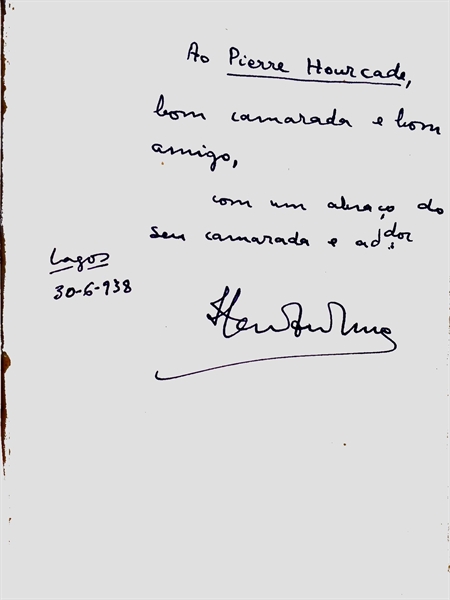 Ao Pierre Hourcade,
bom camarada e bom
amigo,
com um abraço do
seu camarada e ad.dor
Lagos
30-6-938